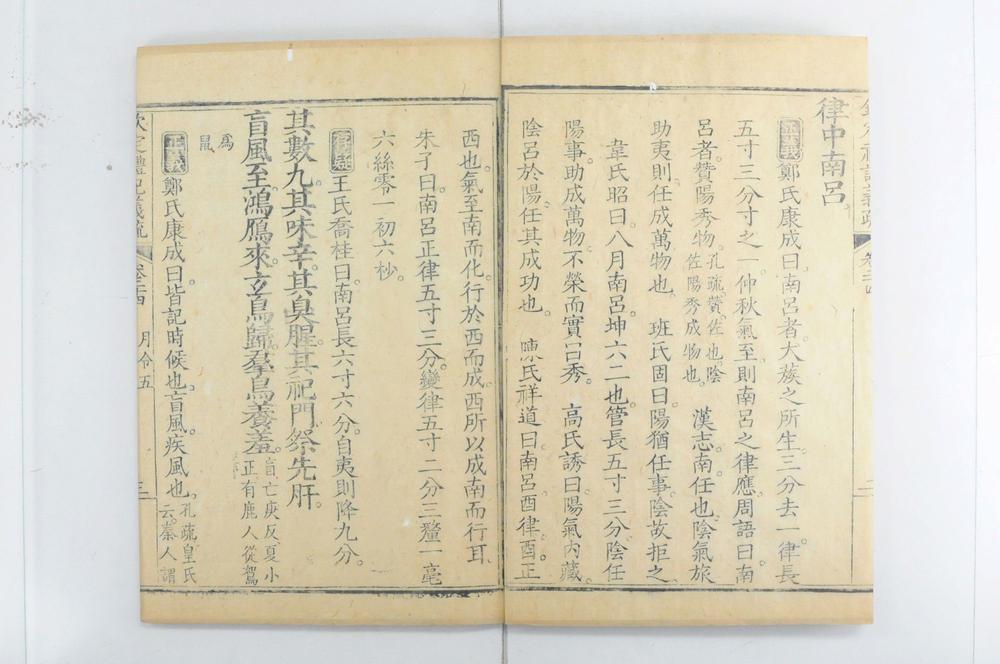 律中南呂
正義 鄭氏康成曰南呂者大蔟之所生三分去一律長
五寸三分寸之一仲秋氣至則南呂之律應周語曰南
呂者贊陽秀物孔疏贊佐也陰
佐陽秀成物也 漢志南任也陰氣旅
助夷則任成萬物也 班氏固曰陽猶任事陰故拒之
韋氏昭曰八月南呂坤六二也管長五寸三分陰任
陽事助成萬物不榮而實曰秀 高氏誘曰陽氣內藏
陰呂於陽任其成功也 陳氏祥道曰南呂酉律酉正
西也氣至南而化行於西而成西所以成南而行耳
朱子曰南呂正律五寸三分變律五寸二分三釐一毫
六絲零一初六秒
存疑 王氏喬桂曰南呂長六寸六分自夷則降九分
其數九其味辛其臭腥其祀門祭先肝
盲風至鴻鴈來玄鳥歸羣鳥養羞盲亡庚反夏小
正有鹿人從鴽
為
鼠
正義 鄭氏康成曰皆記時候也盲風疾風也孔疏皇氏
云秦人謂
欽定禮記義疏 卷二十四 月令五 三